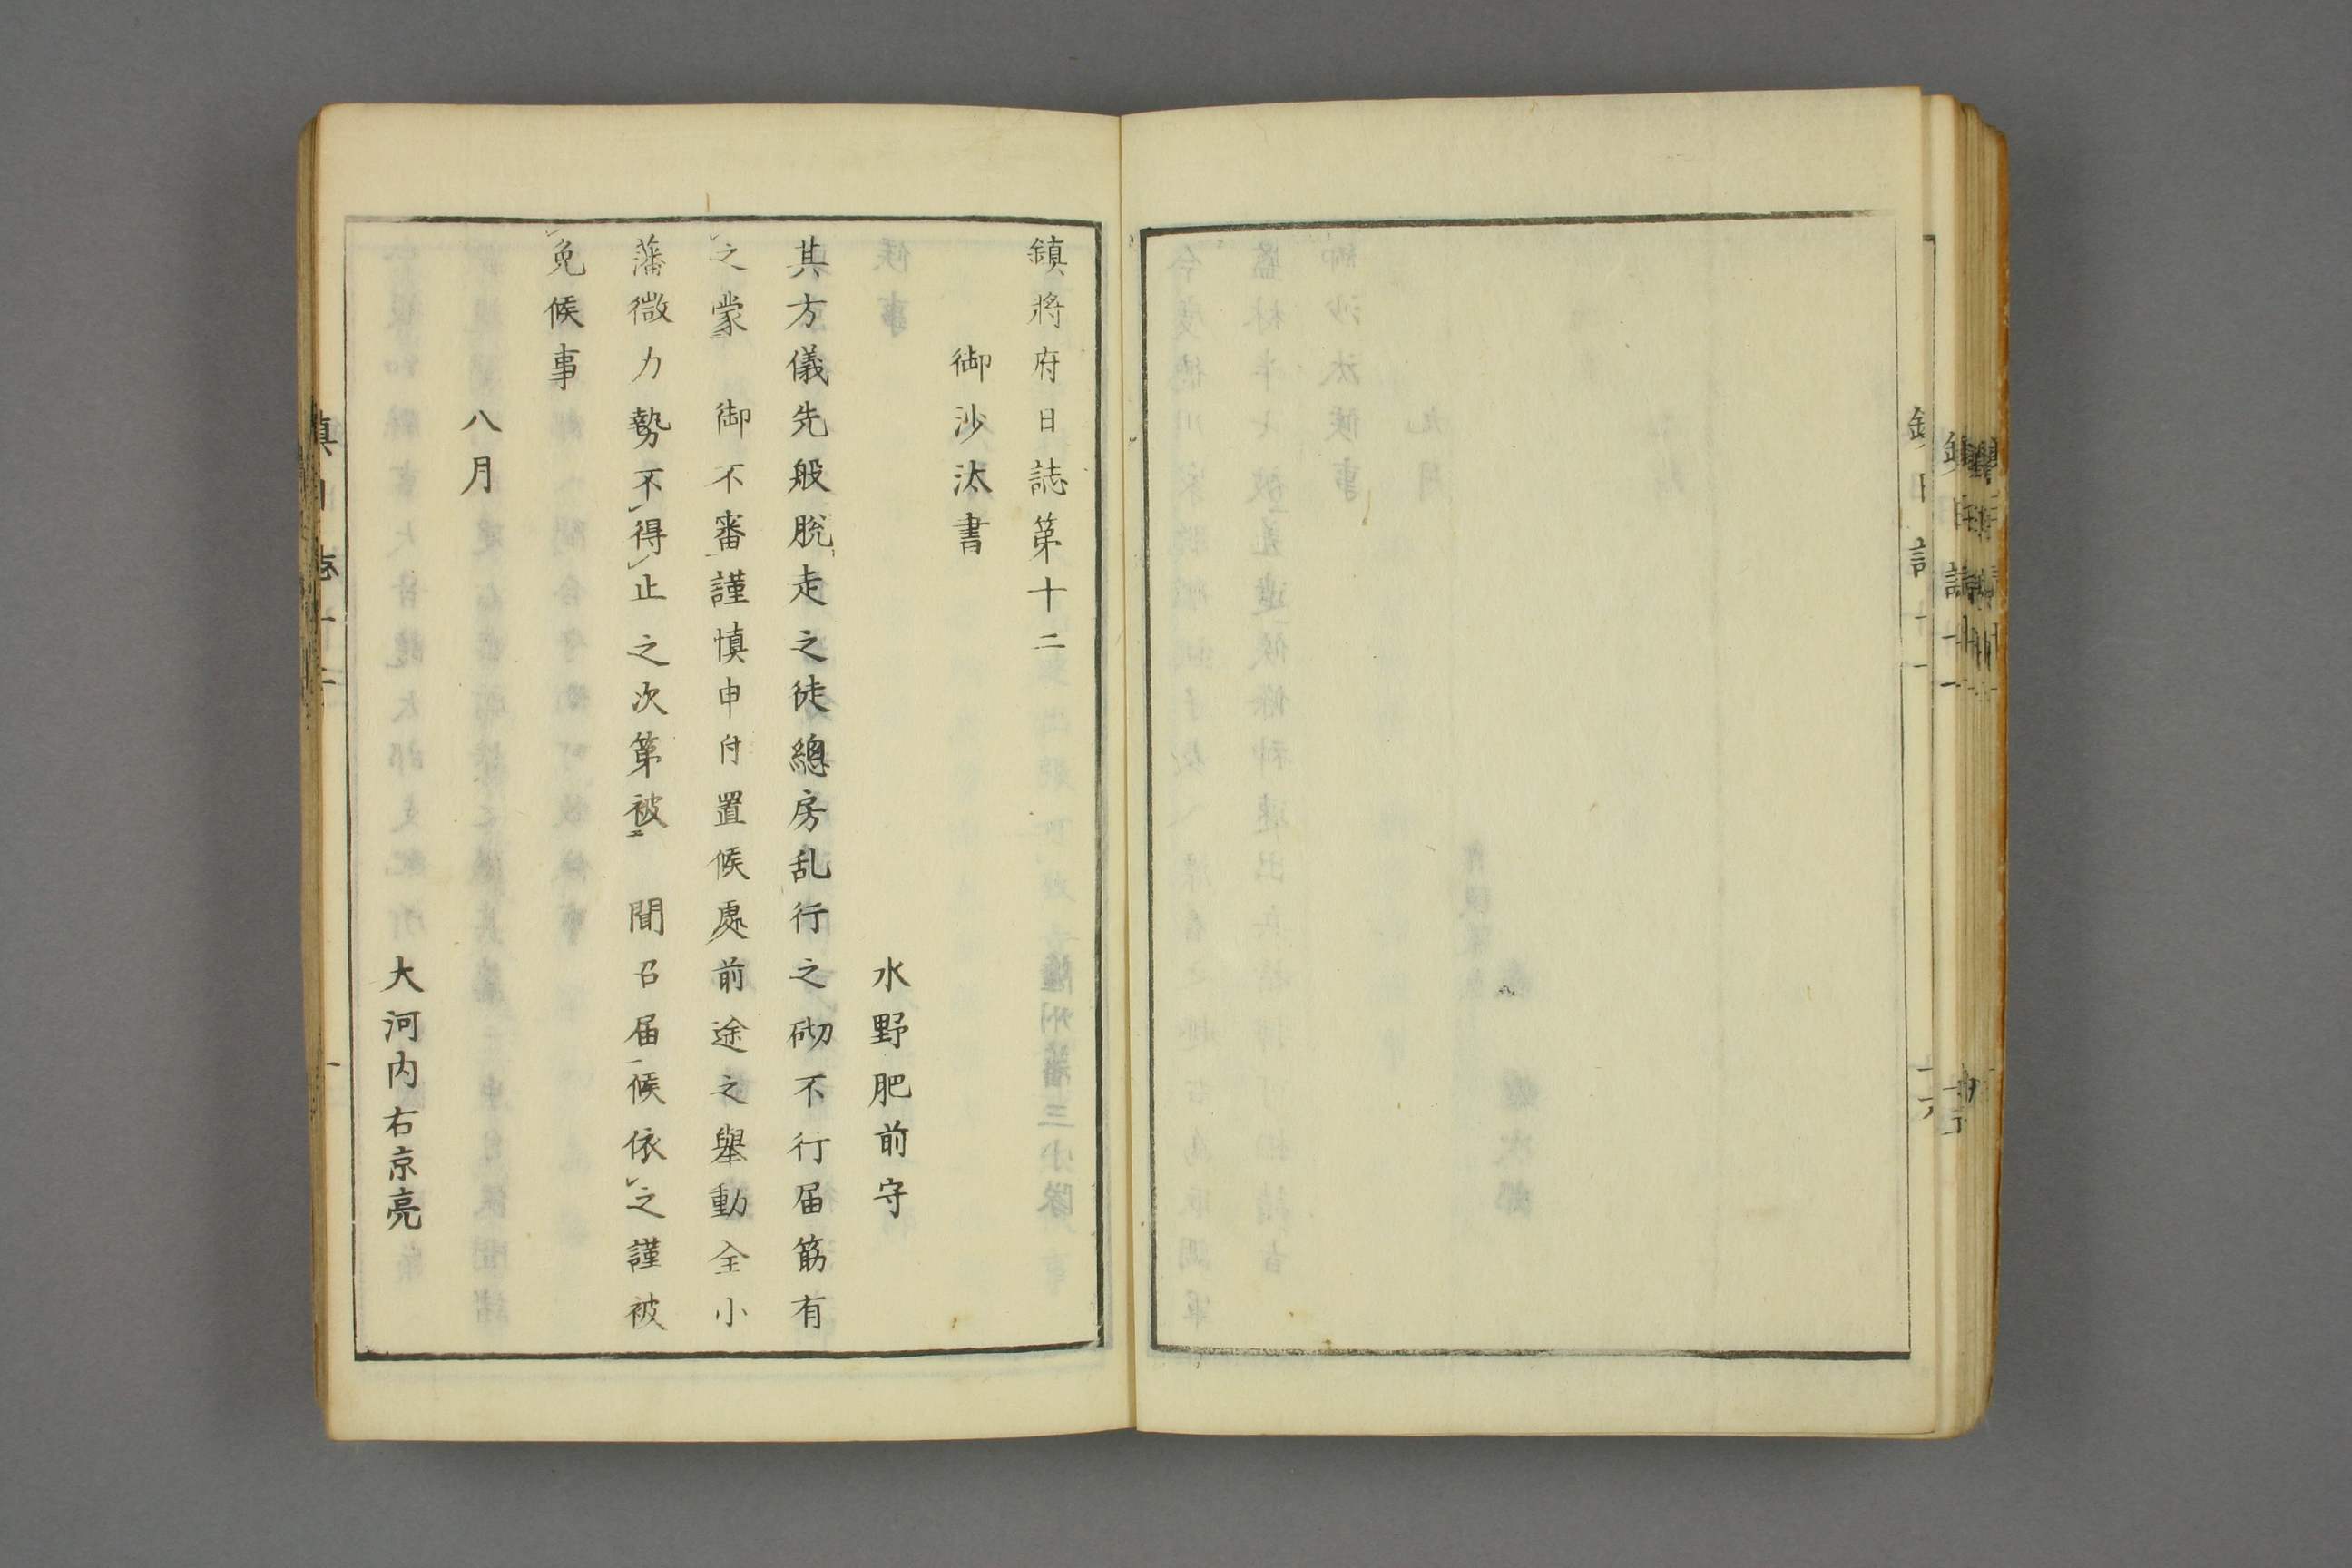 鎮將府日誌第十二
御沙汰書
水野肥前守
其方儀先般脱走之徒總房乱行之砌不行届筋有
之蒙　御不審謹慎申付置候處前途之舉動全小
藩微力勢不得止之次第被　聞召届候依之謹被
免候事
八月
大河内右京亮